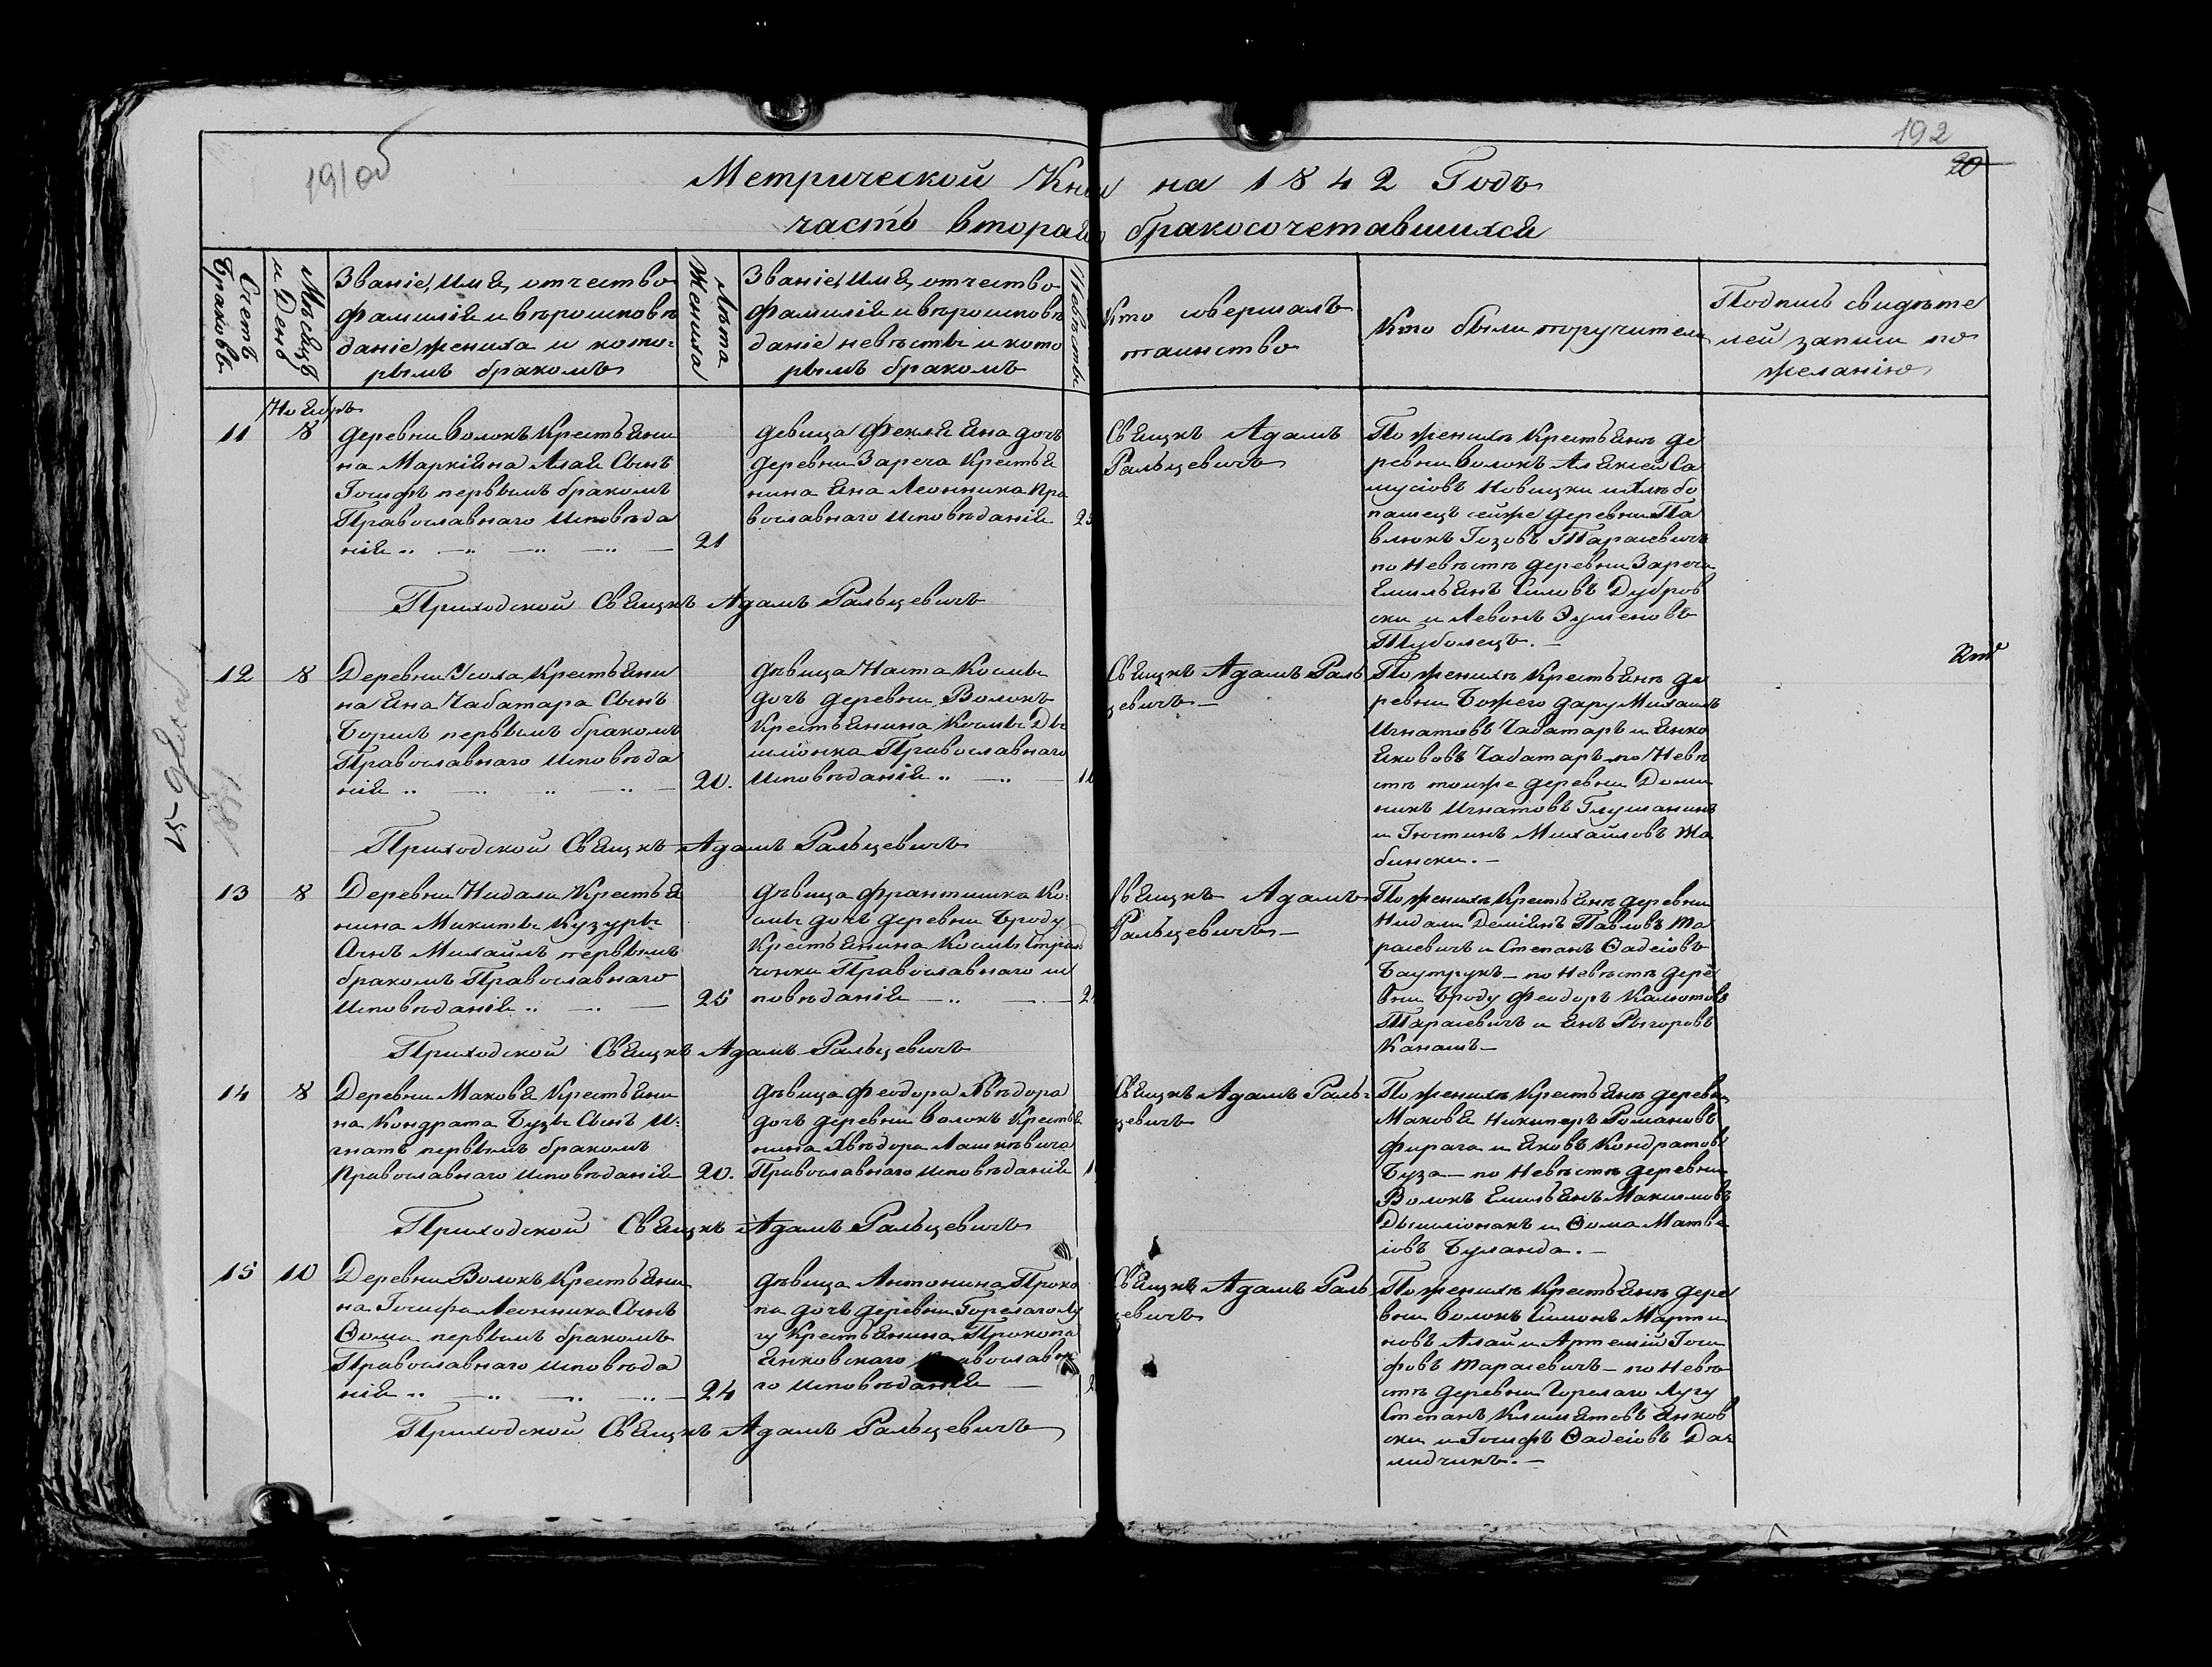 191об
192
20
Метрической Книги на 1842 Годъ
часть вторая бракосочетавшихся
Счетъ Браковъ
Мѣсяцъ и День
Званіе, имя, отчество
фамилія и вѣроисповѣ
даніе жениха и кото-
рымъ бракомъ
Лѣта Жениха
Званіе, имя, отчество
фамилія и вѣроисповѣ
даніе невѣсты и кото
рымъ бракомъ
Невѣсты
Кто совершалъ
таинство
Кто были поручители
Подпись свидѣте
лей записи по
желанію
Ноябрь
11
8
деревни Волокъ Крестьяни
на Маркіяна Алая Сынъ
Іосифъ первымъ бракомъ
Православнаго исповѣда
нія
21
девица Фекля Яна дочь
деревни Зареча Крестья
нина Яна Леонника Пра
вославнаго исповѣданія
Свящкъ Адамъ
Ральцевичъ
По женихѣ Крестьянѣ де
ревни Волокъ Алексей Са
мусіовъ Новицки и Глѣбо
пашецъ сейже деревни Па
влюкъ Іозовъ Тарасевичъ
по Невѣстѣ деревни Зареча
Емильянъ Силовъ Дубров
ски и Левонъ
Туболецъ.
Приходской Свящкъ Адамъ Ральцевичъ
12
8
Деревни Усола Крестьяни
на Яна Чабатара Сынъ
Борисъ первымъ бракомъ
Православнаго исповѣда
нія
20.
дѣвица Наста Космы
дочь деревни Волокъ
Крестьянина Космы Ды
шлюнка Православнаго
исповѣданія
Свящкъ Адамъ Раль
цевичъ
По женихѣ Крестьянѣ де
ревни Божего дару Михаилъ
Игнатовъ Чабатаръ и Янко
Якововъ Чабатаръ по Невѣ
стѣ тоиже деревни Доми
никъ Игнатовъ Глушанинъ
и Іюстинъ Михайловъ Жа
бински.
Приходской Свящкъ Адамъ Ральцевичъ
13
8
Деревни Нидали Крестья
нина Микиты Кузуры
Сынъ Михаилъ первымъ
бракомъ Православнаго
исповѣданія
25
дѣвица Франтишка Ко-
смы дочь деревни Броду
Крестьянина Космы
Православнаго ис
повѣданія
Свящкъ Адамъ
Ральцевичъ
По женихѣ Крестьянѣ деревни
Нидали Деміянъ Павловъ Та
расевичъ и Степанъ Ѳадеіовъ
Баутрукъ по Невѣстѣ дере
вни Броду Феодоръ Калютовъ
Тарасевичъ и Янъ Рыгоровъ
Канашъ
Приходской Свящкъ Адамъ Ральцевичъ
14
8
Деревни Маковя Крестьяни
на Кондрата Бузы Сынъ И-
гнатъ первымъ бракомъ
Православнаго исповѣданія
20.
дѣвица Феодора Авѣдора
дочь деревни Волокъ Крестья
нина Авѣдора Лашкѣвича
Православнаго исповѣданія
Свящкъ Адамъ Раль-
цевичъ
По женихѣ Крестьянѣ деревни
Маковя Никиперъ Романовъ
Фирага и Яковъ Кондратовъ
Буза по Невѣстѣ деревни
Волокъ Емильянъ Максимовъ
Дышліонакъ и Ѳома Матве
іовъ Буланда.
Приходской Свящкъ Адамъ Ральцевичъ
15
10
Деревни Волокъ Крестьяни
на Іосифа Леонника Сынъ
Ѳома первымъ бракомъ
Православнаго исповѣда
нія
24
дѣвица Антонина Проко
па дочь деревни Горелаго Лу
гу Крестьянина Прокопа
Янковскаго Православна
го исповѣданія
Свящкъ Адамъ Раль
цевичъ
По женихѣ Крестьянѣ дере
вни Волокъ Симонъ Марти
новъ Алай и Артемій Іоси
фовъ Тарасевичъ по Невѣ
стѣ деревни Горелаго Лугу
Степанъ Климятовъ Янков
ски и Іосифъ Ѳадеіовъ Да
мидчикъ.
Приходской Свящкъ Адамъ Ральцевичъ